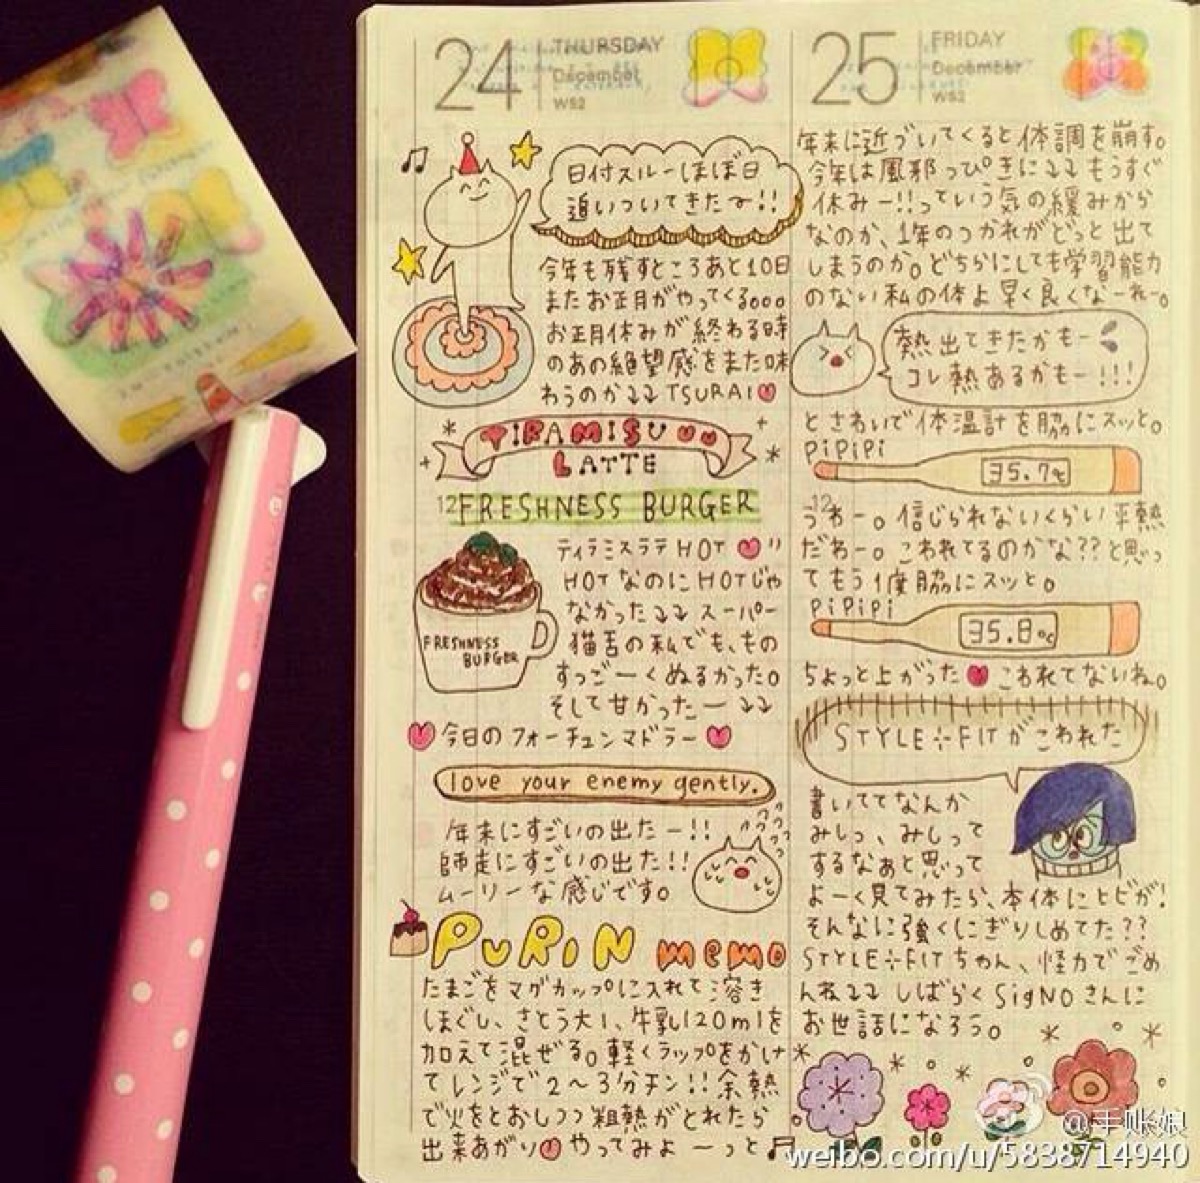 24
THURSDAY
December
W52
日付スルーほぼ日
追いついてきたァ!!
今年も残すところあと10日
またお正月がやってくる。。。
お正月休みが終わる時
のあの絶望感をまた味
わうのか↓↓TSURAI
TIRAMISU
LATTE
12
FRESHNESS BURGER
ティラミスラテHOT
HOTなのにHOTじゃ
なかった↓↓スーパー
猫舌の私でも、もの
すっごーくぬるかった。
そして甘かったー↓↓
FRESHNESS
BURGER
今日のフォーチュンマドラー
love your enemy gently.
年末にすごいの出たー!!
師走にすごいの出た!!
ムーリーな感じです。
PURIN memo
たまごをマグカップに入れて溶き
ほぐし、さとう大1、牛乳120mlを
加えて混ぜる。軽くラップをかけ
てレンジで2〜3分チン!!余熱
で火をとおしつつ粗熱がとれたら
出来あがり やってみよーっと
25
FRIDAY
December
W52
年末に近づいてくると体調を崩す。
今年は風邪っぴきに↓↓もうすぐ
休みー!!っていう気の緩みから
なのか、1年のつかれがどっと出て
しまうのか。どちらにしても学習能力
のない私の体よ早く良くなーれー。
熱出てきたかもー
コレ熱あるかもー!!!
とさわいで体温計を脇にスッと。
PiPiPi
35.7℃
12
うわー。信じられないくらい平熱
だわー。こわれてるのかな??と思っ
てもう1度脇にスッと。
PiPiPi
35.8℃
ちょっと上がった こわれてないね。
STYLE÷FITがこわれた
書いててなんか
みしっ、みしって
するなぁと思って
よーく見てみたら、本体にヒビが!
そんなに強くにぎりしめてた??
STYLE÷FITちゃん、怪力でごめ
んね↓↓しばらくSigNOさんに
お世話になろう。
@手账娘
weibo.com/u/5838714940